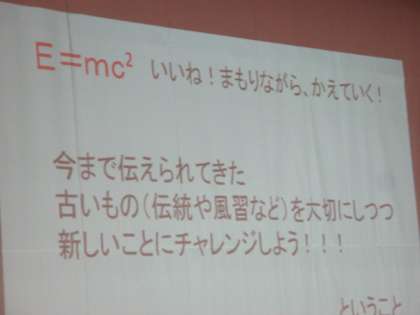 E=mc² いいね！まもりながら、かえていく！
今まで伝えられてきた
古いもの（伝統や風習など）を大切にしつつ
新しいことにチャレンジしよう！！！
ということ